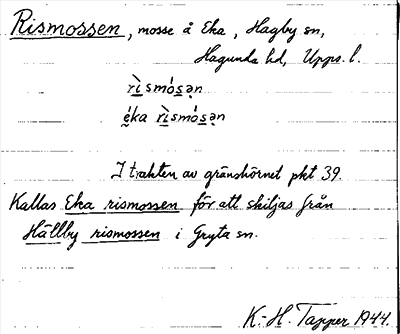 Rismossen, mosse å Eka, Hagby sn,
Hagunda hd, Upps. l.
rì smósən
éka rìsmósən
I trakten av gränshörnet pkt 39.
Kallas Eka rismossen för att skiljas från
Hällby rismossen i Gryta sn.
K.-H. Tapper 1944.